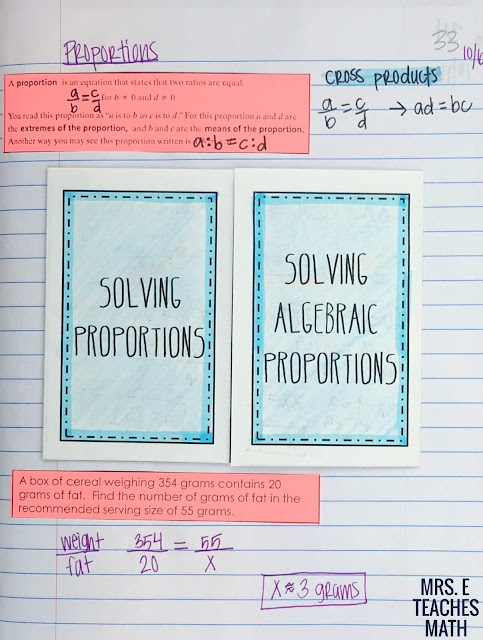 Proportions
33
A proportion is an equation that states that two ratios are equal.
a/b = c/d for b ≠ 0 and d ≠ 0
You read this proportion as "a is to b as c is to d." For this proportion a and d are
the extremes of the proportion, and b and c are the means of the proportion.
Another way you may see this proportion written is a:b = c:d
cross products
a/b = c/d → ad = bc
SOLVING
PROPORTIONS
SOLVING
ALGEBRAIC
PROPORTIONS
A box of cereal weighing 354 grams contains 20
grams of fat. Find the number of grams of fat in the
recommended serving size of 55 grams.
weight/fat 354/20 = 55/x
x ≈ 3 grams
MRS. E
TEACHES
MATH